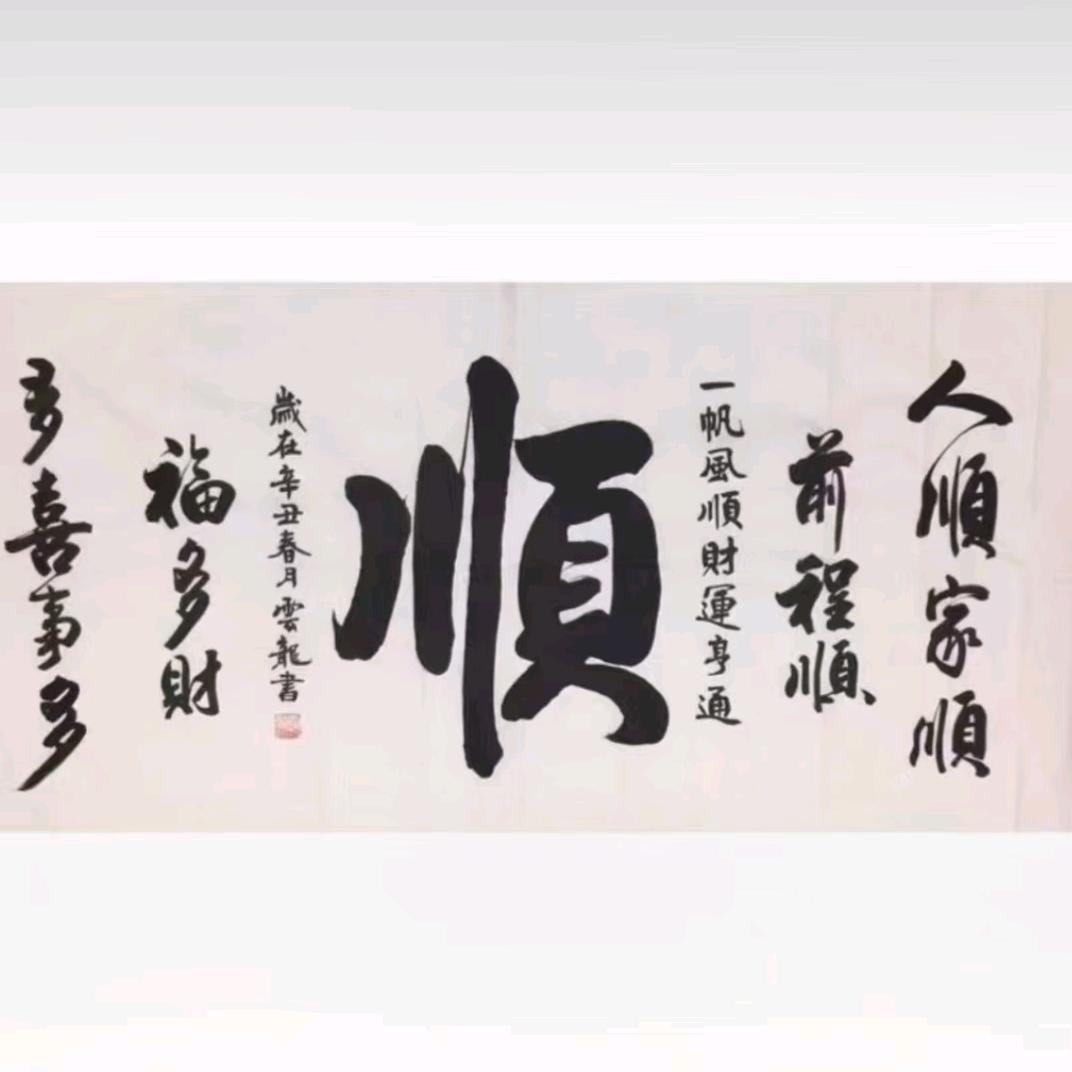 人順家順
前程順
一帆風順財運亨通
順
歲在辛丑春月雲龍書
福多財
多喜事多